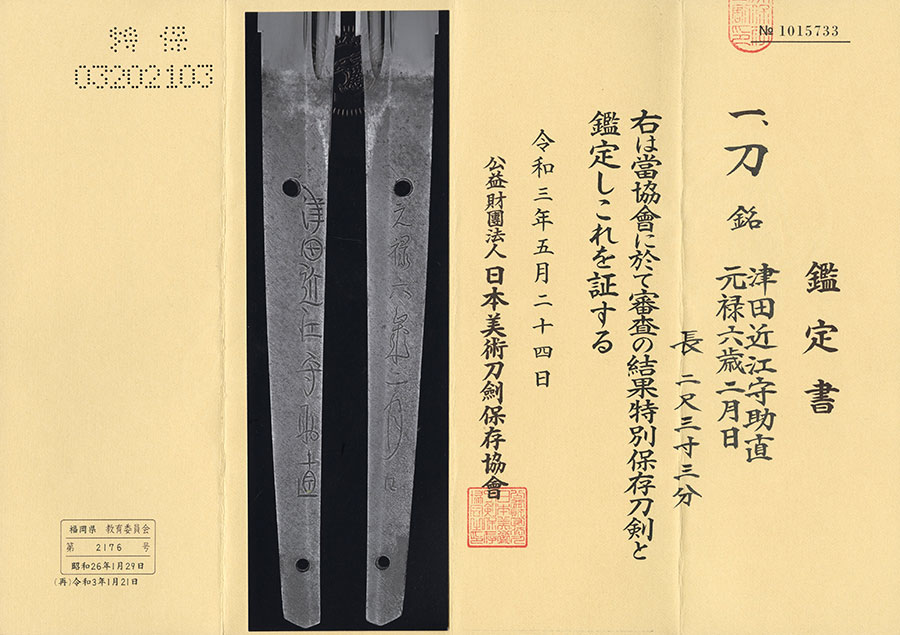 № 1015733
鑑定書
一、刀 銘 津田近江守助直
元禄六歳二月日
長 二尺三寸三分
右は當協會に於て審査の結果特別保存刀剣と
鑑定しこれを証する
令和三年五月二十四日
公益財團法人 日本美術刀劍保存協會
元禄六歳二月日
津田近江守助直
特 保
03202103
福岡県 教育委員会
第 2176 号
昭和26年1月29日
(再)令和3年1月21日